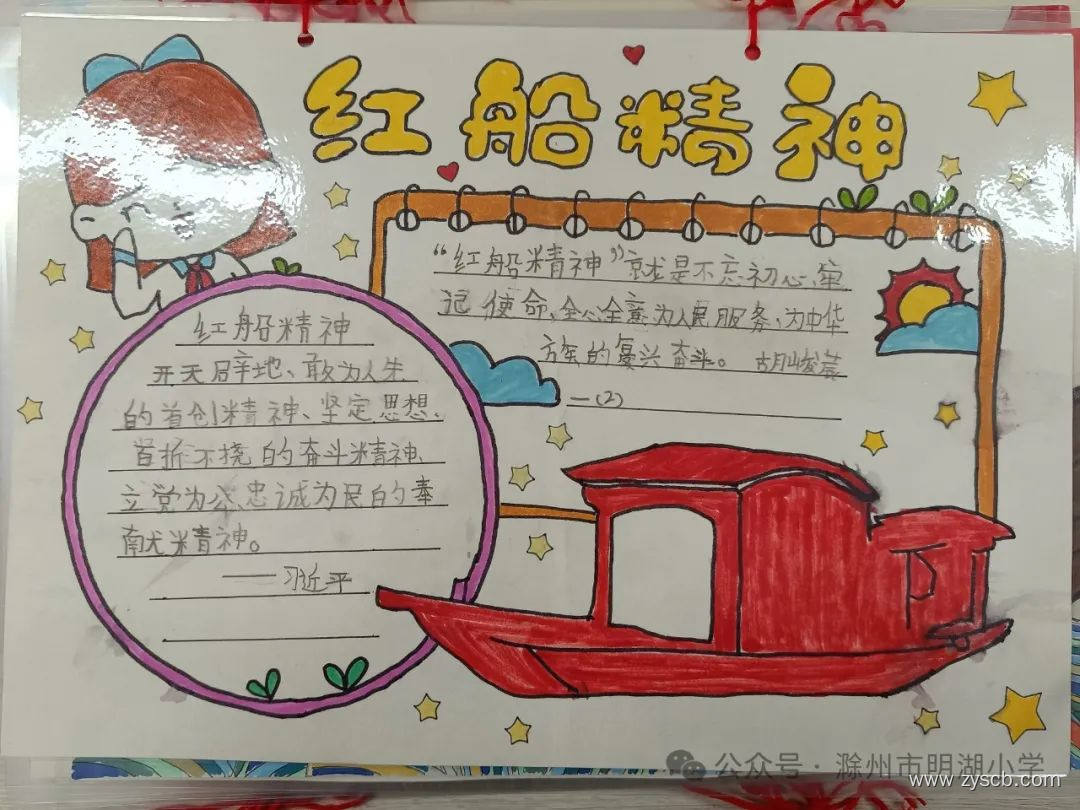 红船精神
"红船精神"就是不忘初心、牢
记使命、全心全意为人民服务、为中华
方族的复兴奋斗。 胡峻莀
—(2)
红船精神
开天辟地、敢为人先
的首创精神、坚定思想、
百折不挠的奋斗精神、
立党为公、忠诚为民的奉
献精神。
——习近平
公众号·滁州市明湖小学
www.zyscb.com